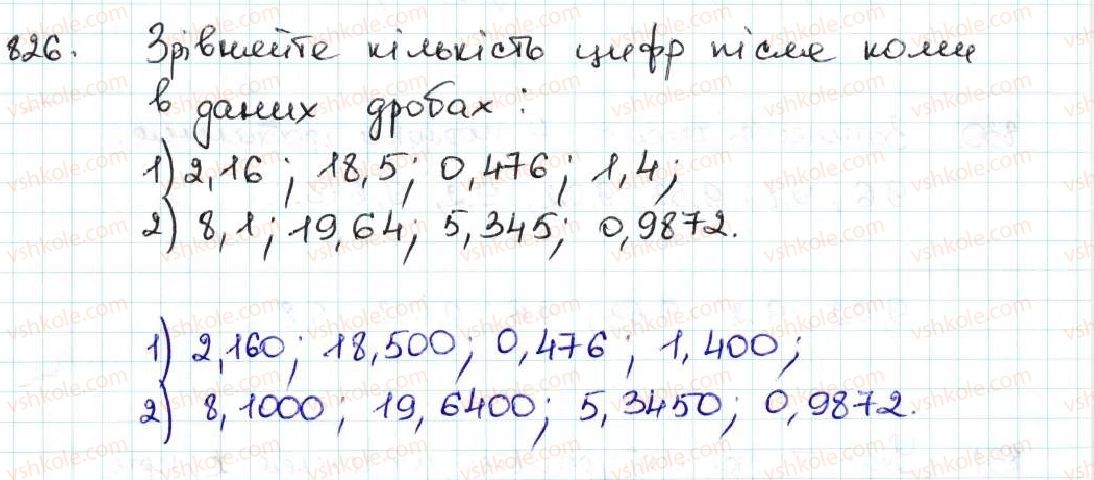 826. Зрівняйте кількість цифр після коми
в даних дробах:
1) 2,16; 18,5; 0,476; 1,4;
2) 8,1; 19,64; 5,345; 0,9872.
1) 2,160; 18,500; 0,476; 1,400;
2) 8,1000; 19,6400; 5,3450; 0,9872.